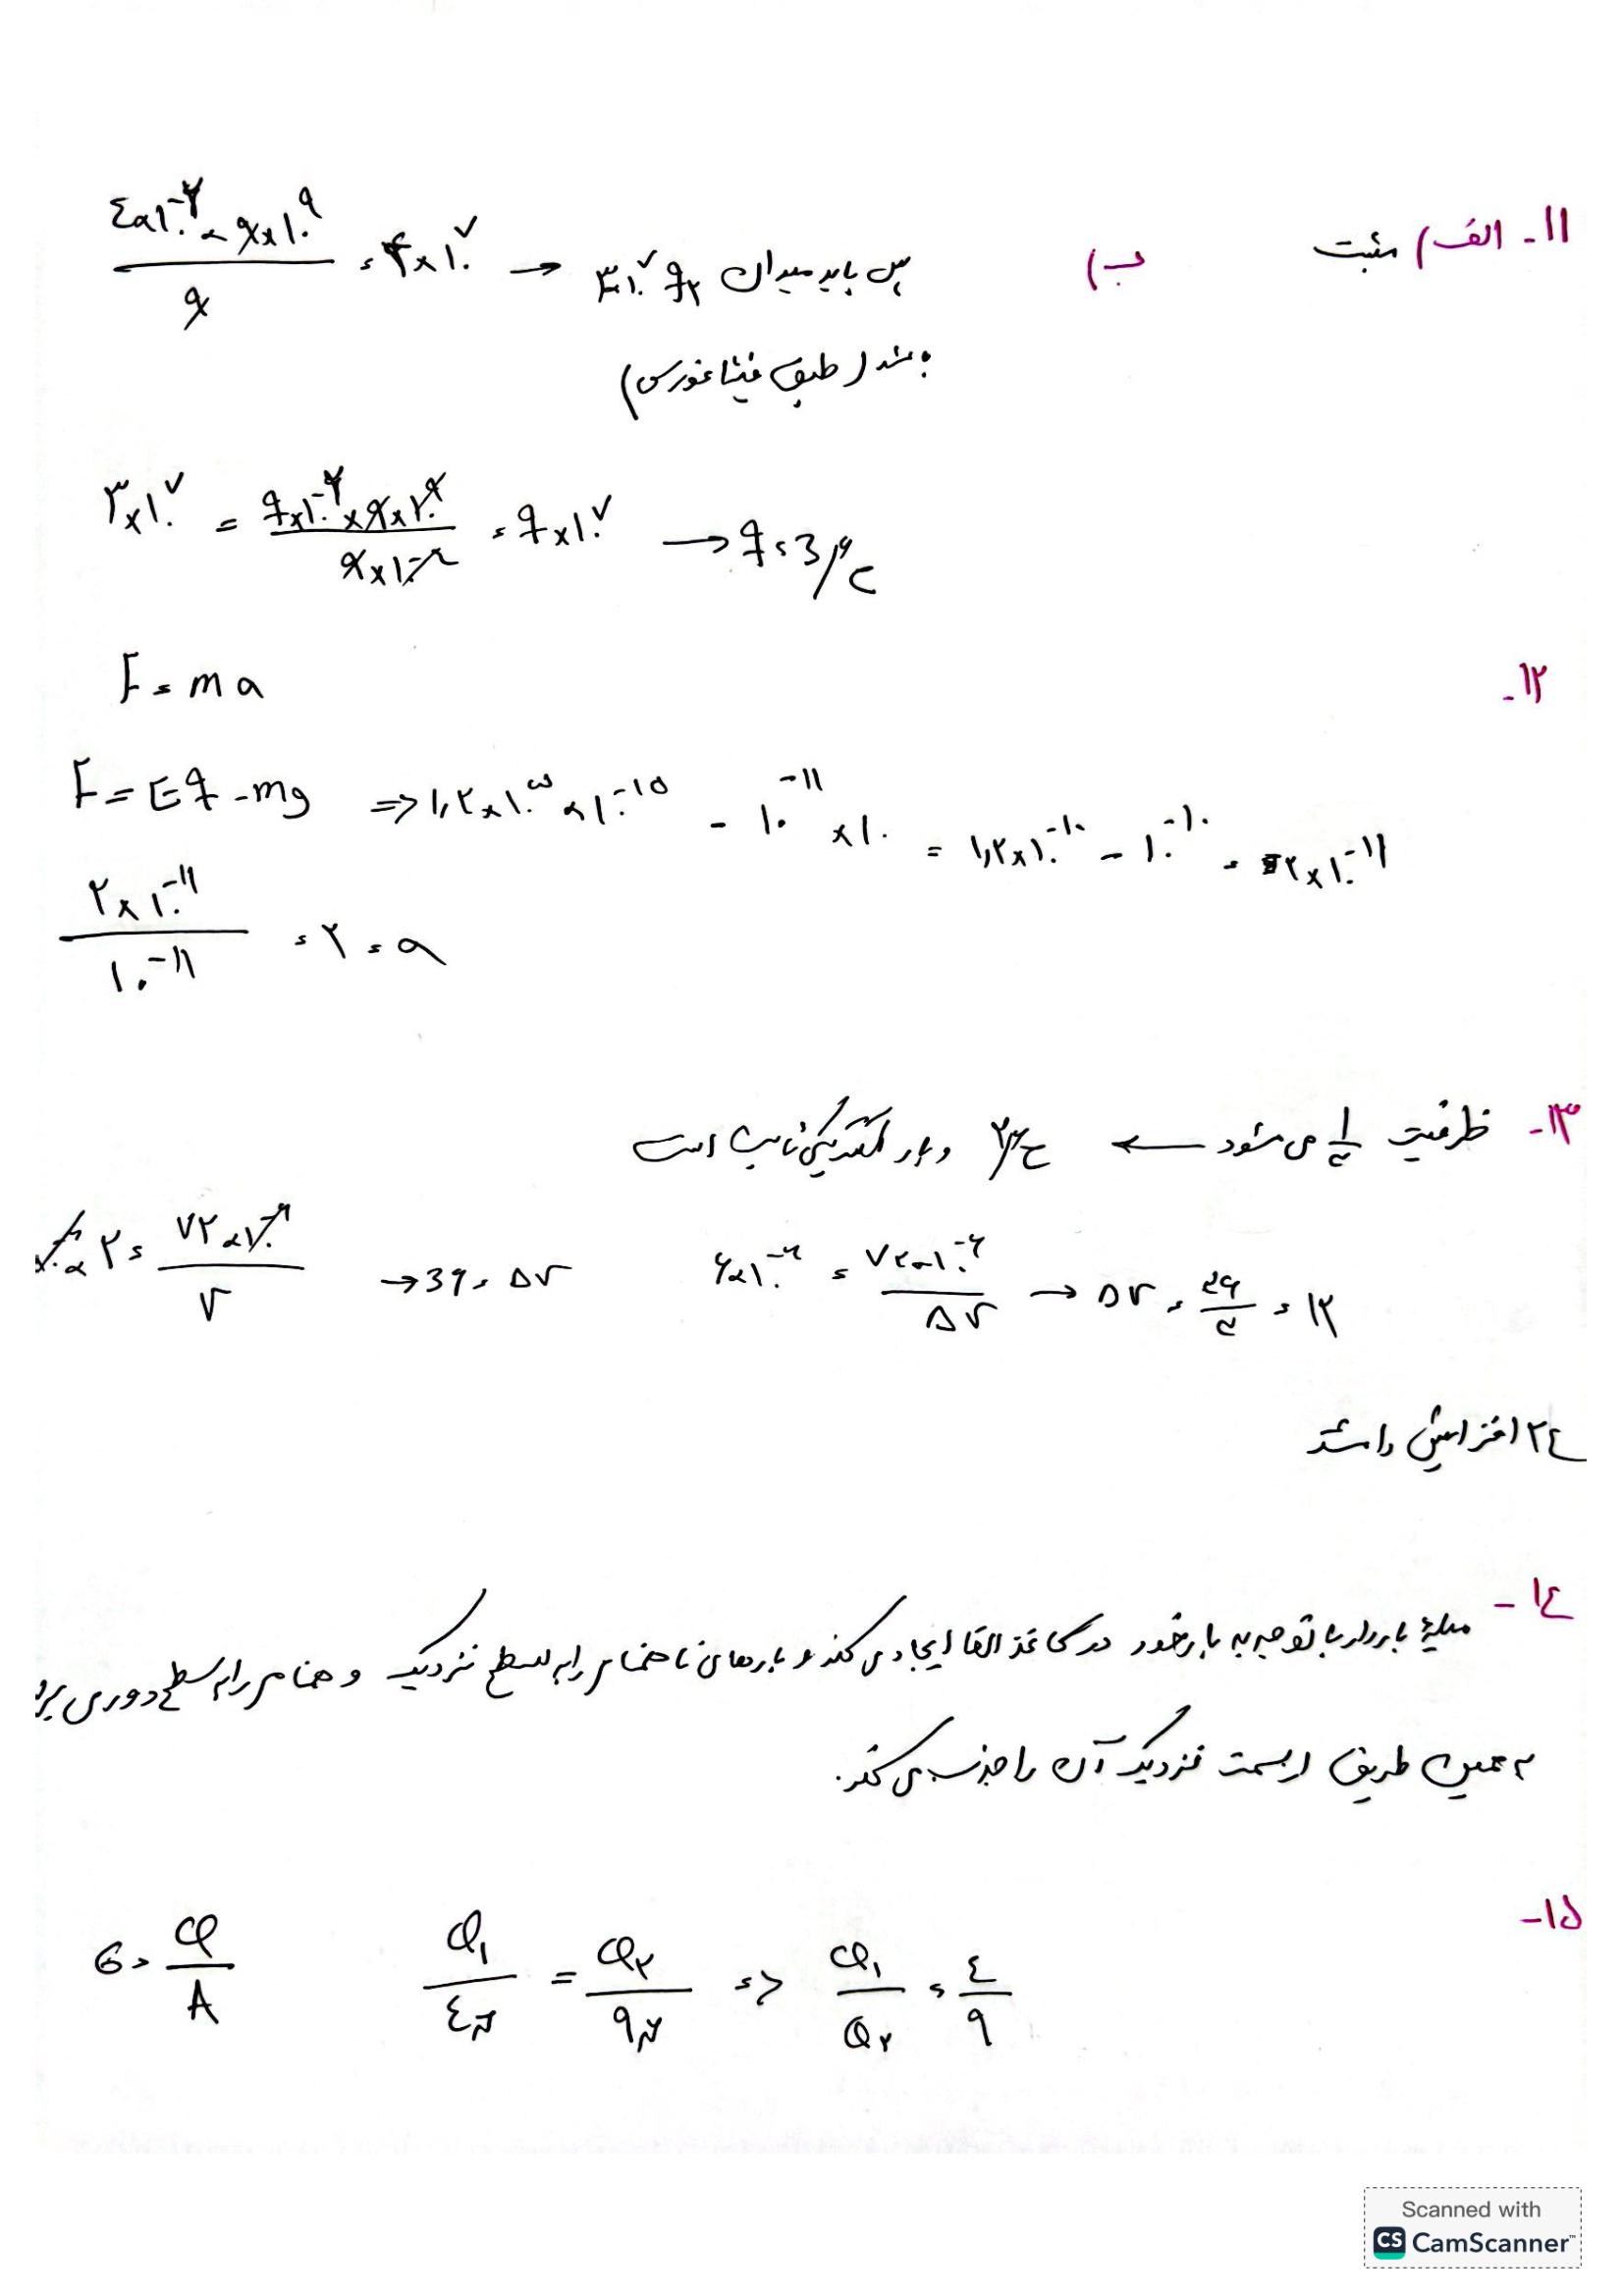 ۱۱- الف) مثبت ب) پس باید میدان q۲ ۳×۱۰^۷ ← ۴×۱۰^۷ = (۴×۱۰^-۶ × ۹×۱۰^۹)/۹
باشد (طبق فیثاغورس)
۳×۱۰^۷ = (q×۱۰^-۶ × ۹×۱۰^۹)/(۹×۱۰^-۴) = q×۱۰^۷ → q = 3μC
۱۲-
F = ma
F = Eq - mg ⇒ ۱٫۲×۱۰^۵ × ۱۰^-۱۵ - ۱۰^-۱۱ × ۱۰ = ۱٫۲×۱۰^-۱۰ - ۱۰^-۱۰ = ۲×۱۰^-۱۱
(۲×۱۰^-۱۱)/(۱۰^-۱۱) = ۲ = a
۱۳- ظرفیت ۱/۳ می شود ← ۲μC و بار الکتریکی ثابت است
۲ = (۷۲×۱۰^-۶)/V → 36 = ΔV ۶×۱۰^-۶ = (۷۲×۱۰^-۶)/ΔV → ΔV = ۳۶/۳ = ۱۲
۲۴ افزایش داشته
۱۴-
میلهٔ باردار با توجه به بار خود در کاغذ القا ایجاد می کند و بارهای ناهمنام را به سطح نزدیک و همنام را به سطح دور می برد
به همین طریق از سمت نزدیک آن را جذب می کند.
۱۵-
σ = Q/A Q۱/۴π = Q۲/۹π => Q۱/Q۲ = ۴/۹
Scanned with
CS CamScanner™